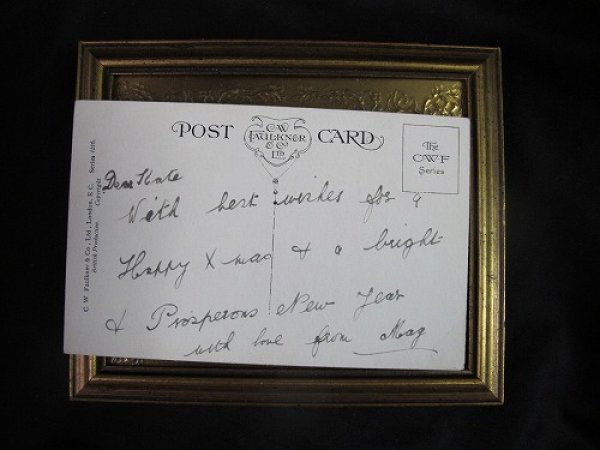 POST CARD
C.W. FAULKNER & Co LTD
The CWF Series
C. W. Faulkner & Co., Ltd., London, E.C. Series
British Production. Copyright
Dear Kate
With best wishes for a
Happy Xmas & a bright
& Prosperous New Year
with love from Mag